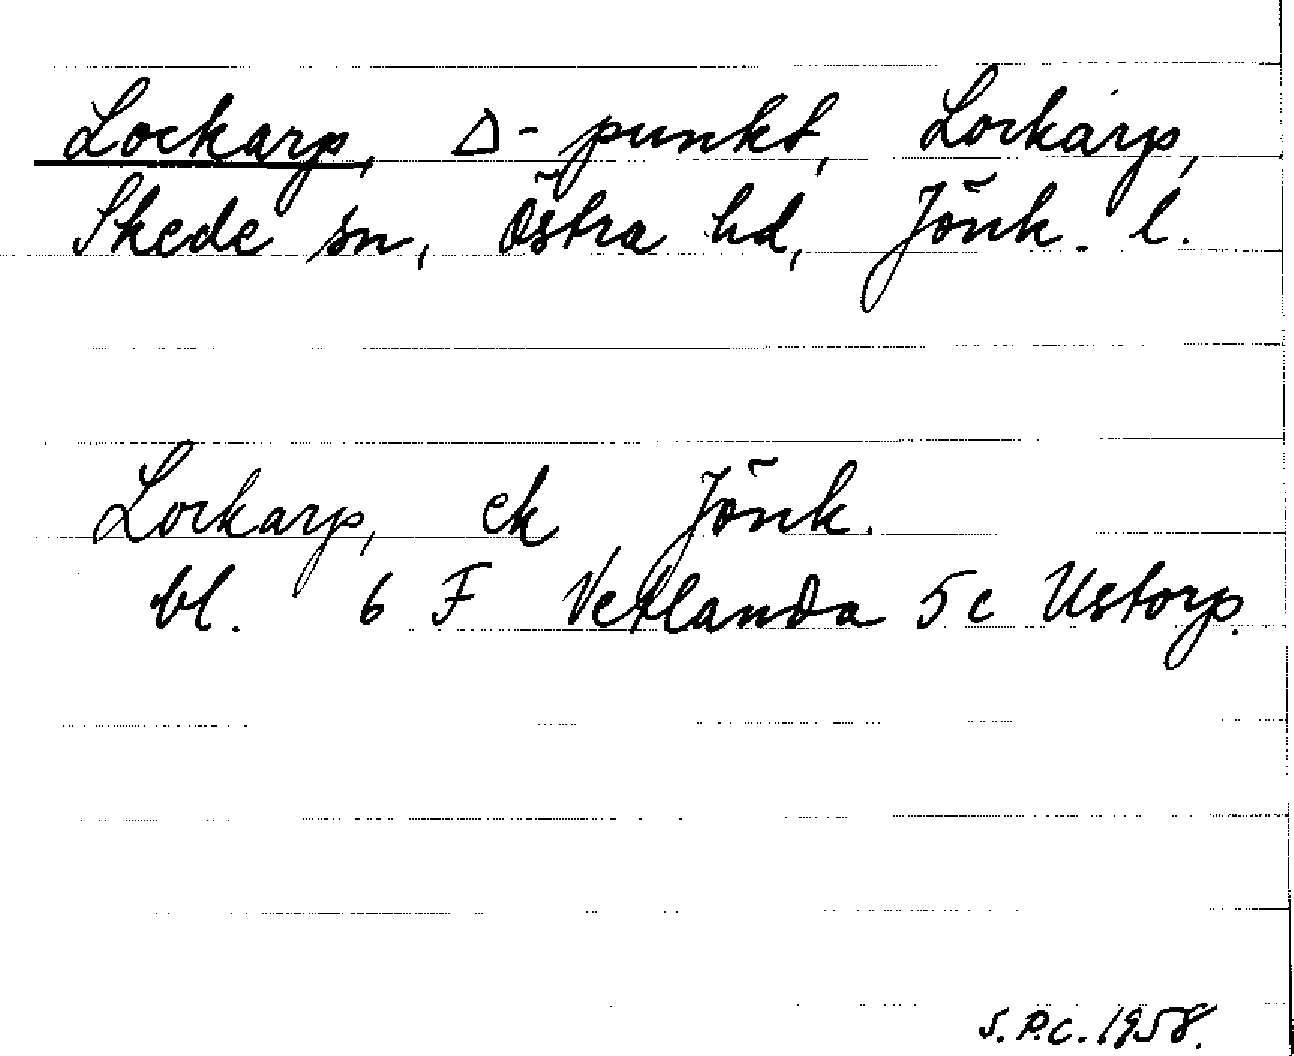 Lockarp, Δ-punkt, Lockarp,
Skede sn, Östra hd, Jönk. l.
Lockarp, ek Jönk.
bl. 6 F Vetlanda 5c Ustorp.
S.P.C. 1958.